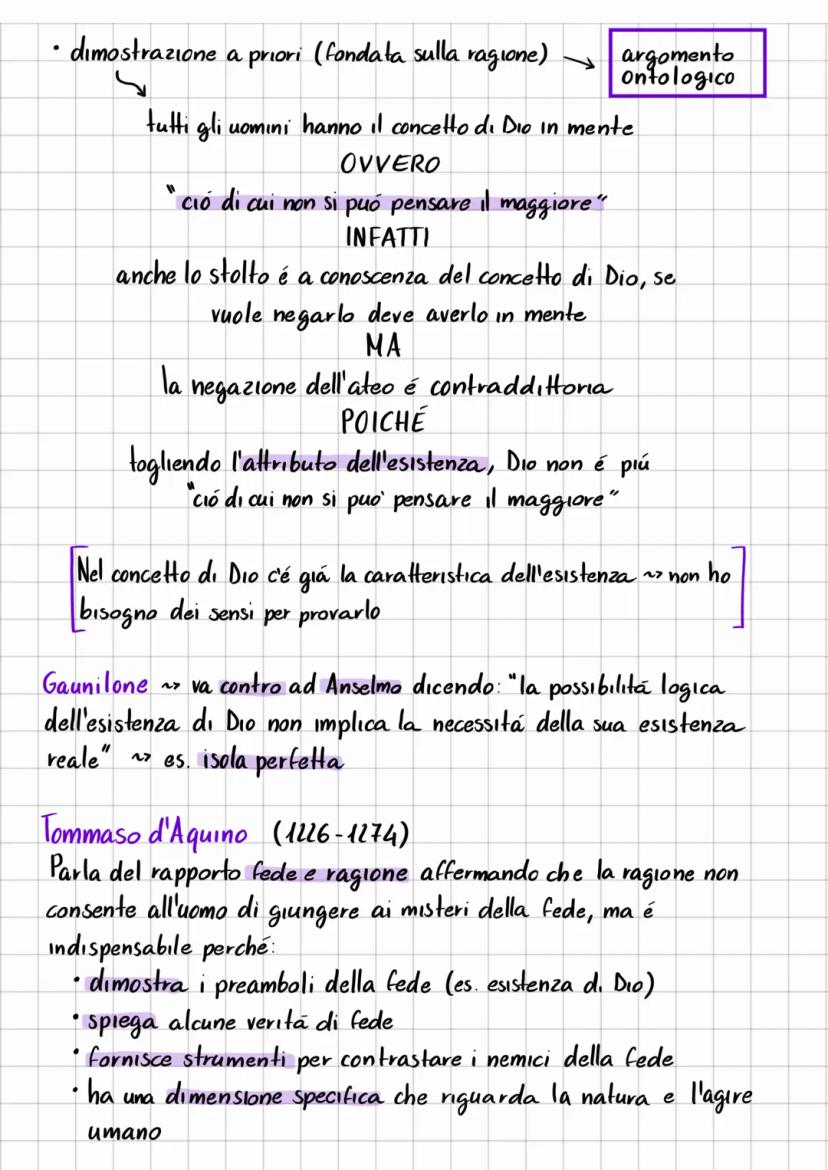 • dimostrazione a priori (fondata sulla ragione) → argomento
ontologico
tutti gli uomini hanno il concetto di Dio in mente
OVVERO
"ció di cui non si puó pensare il maggiore"
INFATTI
anche lo stolto é a conoscenza del concetto di Dio, se
vuole negarlo deve averlo in mente
MA
la negazione dell'ateo é contraddittoria
POICHÉ
togliendo l'attributo dell'esistenza, Dio non é piú
"ció di cui non si puo' pensare il maggiore"
Nel concetto di Dio c'é giá la caratteristica dell'esistenza ~> non ho
bisogno dei sensi per provarlo
Gaunilone ~> va contro ad Anselmo dicendo: "la possibilitá logica
dell'esistenza di Dio non implica la necessitá della sua esistenza
reale" ~> es. isola perfetta
Tommaso d'Aquino (1226-1274)
Parla del rapporto fede e ragione affermando che la ragione non
consente all'uomo di giungere ai misteri della fede, ma é
indispensabile perché:
• dimostra i preamboli della fede (es. esistenza di Dio)
• spiega alcune veritá di fede
• fornisce strumenti per contrastare i nemici della fede
• ha una dimensione specifica che riguarda la natura e l'agire
umano